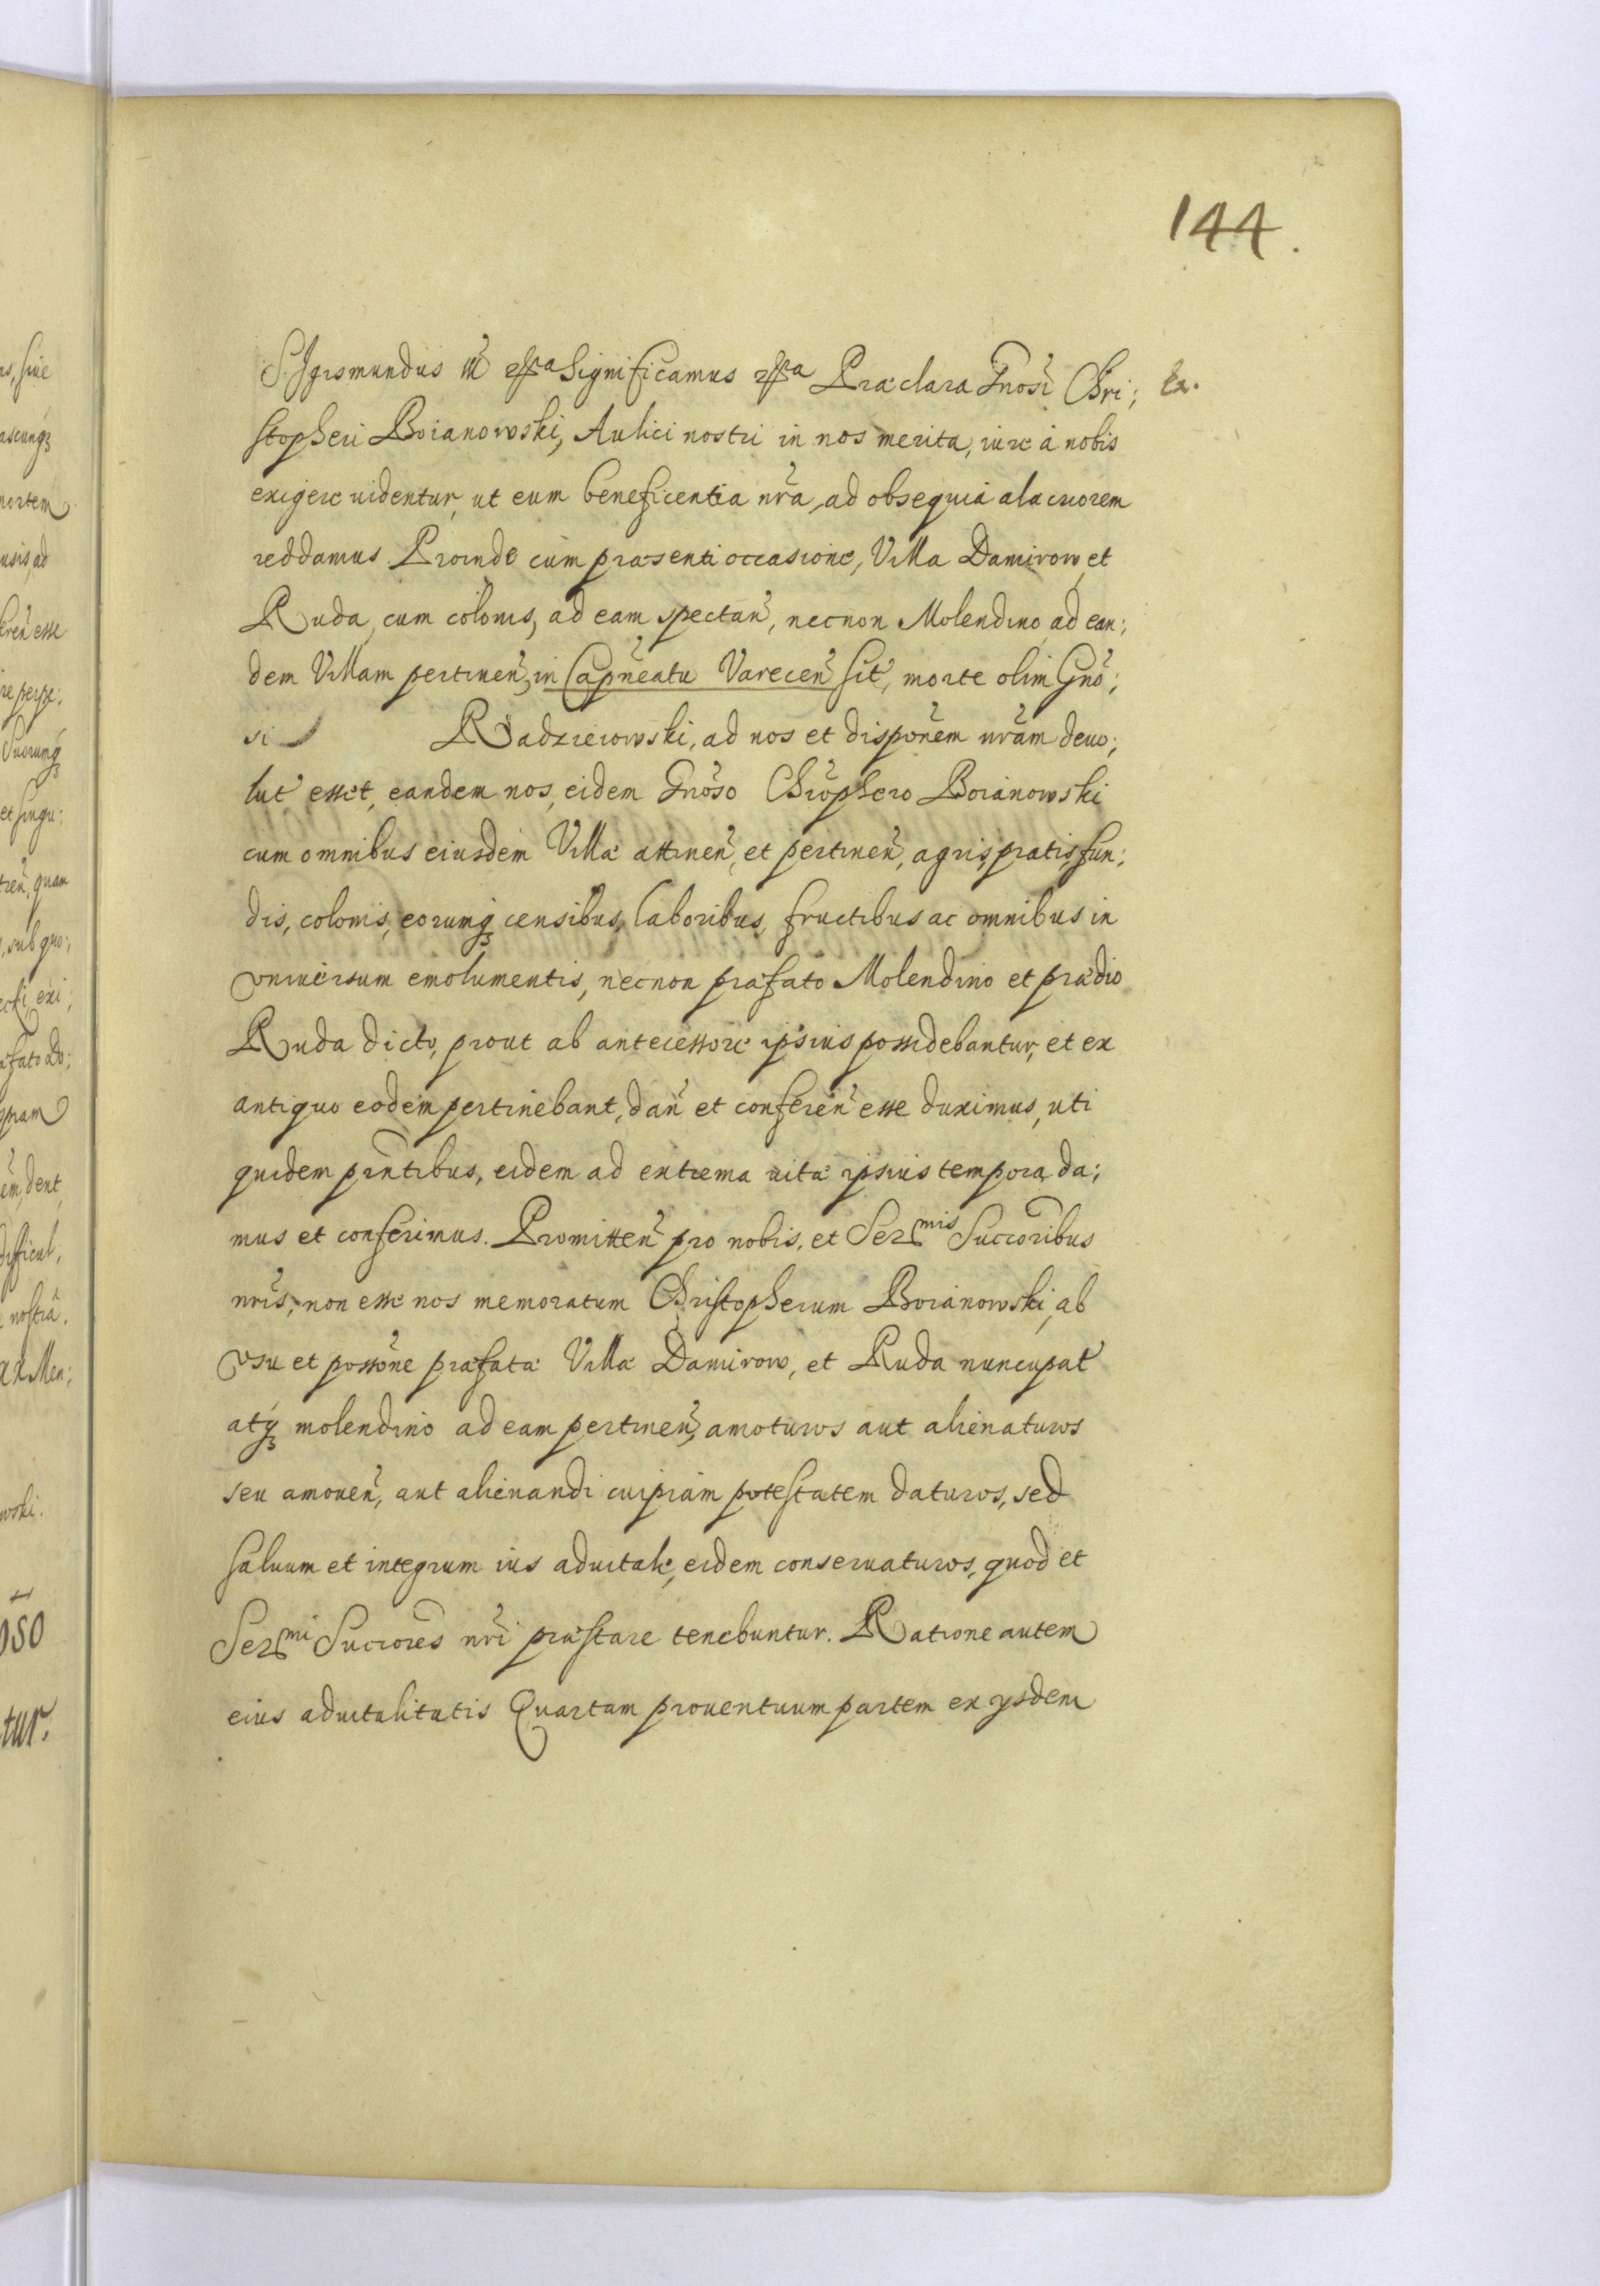 144.
SIgismundus III etc̃a Significamus etc̃a Præclara Gnosi Chri; Ex.
stopheri Boianowski, Aulici nostri in nos merita, iure à nobis
exigere uidentur, ut eum beneficentia nr̃a, ad obsequia alacriorem
reddamus. Proinde cum præsenti occasione, Villa Damirow, et
Ruda, cum colonis, ad eam spectan̄, necnon Molendino, ad ean;
dem Villam pertinen̄, in Capñeatu Varecen̄ sit̃, morte olim Gnõ;
si Radzieiowski, ad nos et dispoñem nrãm deuo;
lut̃ esset, eandem nos, eidem Gnõso Chrõphero Boianowski
cum omnibus eiusdem Villæ attinen̄, et pertinen̄, agris, pratis, fun;
dis, colonis, eorumq̃ censibus, laboribus, fructibus ac omnibus in
vniuersum emolumentis, necnon præfato Molendino et prædio
Ruda dicto, prout ab antecessore ipsius possidebantur, et ex
antiquo eodem pertinebant, dan̄ et conferen̄ esse duximus, uti
quidem pñtibus, eidem ad extrema uitæ ipsius tempora, da;
mus et conferimus. Promitten̄ pro nobis, et Ser^mis Succoribus
nr̃is, non esse nos memoratum Christopherum Boianowski, ab
vsu et possõne præfatæ Villæ Damirow, et Ruda nuncupat̃
atq̃ molendino ad eam pertinen̄, amoturos aut alienaturos
seu amouen̄, aut alienandi cuipiam potestatem daturos, sed
saluum et integrum ius aduitale, eidem conseruaturos, quod et
Ser^mi Succores nr̃i præstare tenebuntur. Ratione autem
eius aduitalitatis Quartam prouentuum partem ex ysdem